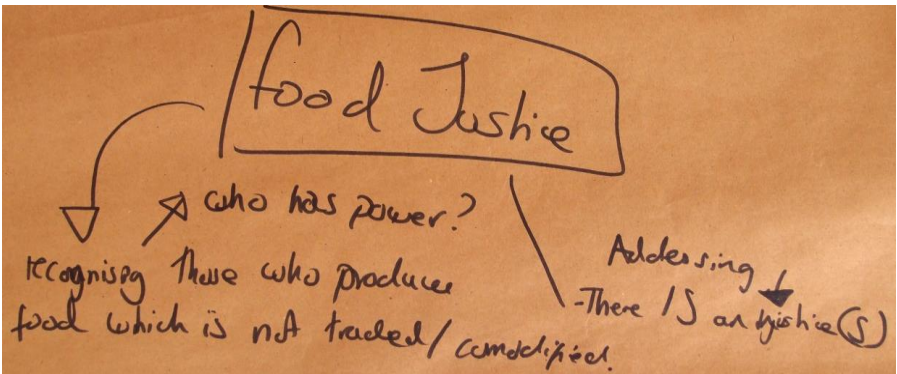 food Justice
who has power?
recognising those who produce
food which is not traded/comodified.
Addressing
-There IS an injustice(s)